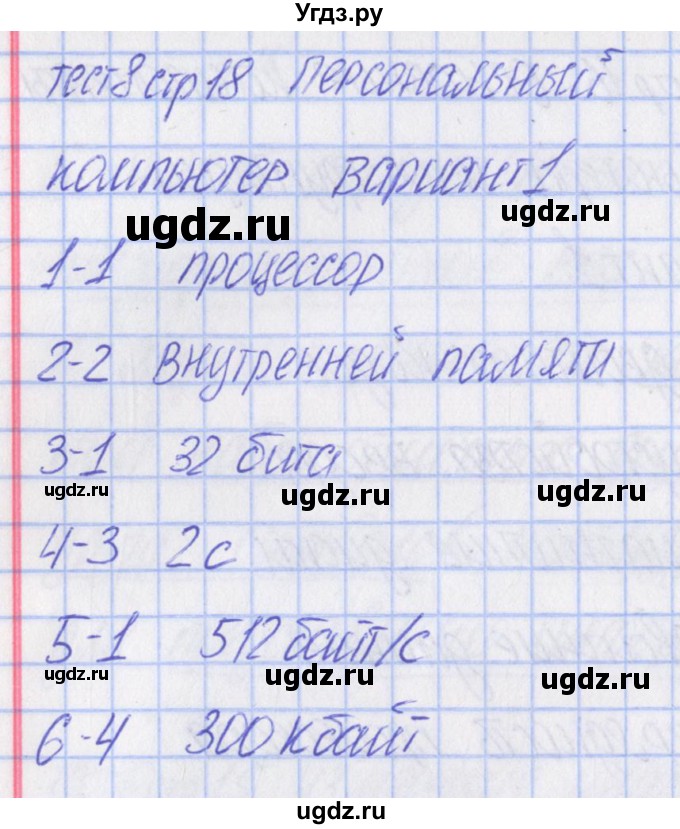 Угдз.ру
тест 8 стр 18 Персональный
компьютер вариант 1
ugdz.ru ugdz.ru
1-1 процессор
2-2 внутренней памяти
3-1 32 бита
ugdz.ru ugdz.ru ugdz.ru
4-3 2 с
5-1 512 байт/с
ugdz.ru ugdz.ru ugdz.ru
6-4 300 Кбайт
ugdz.ru